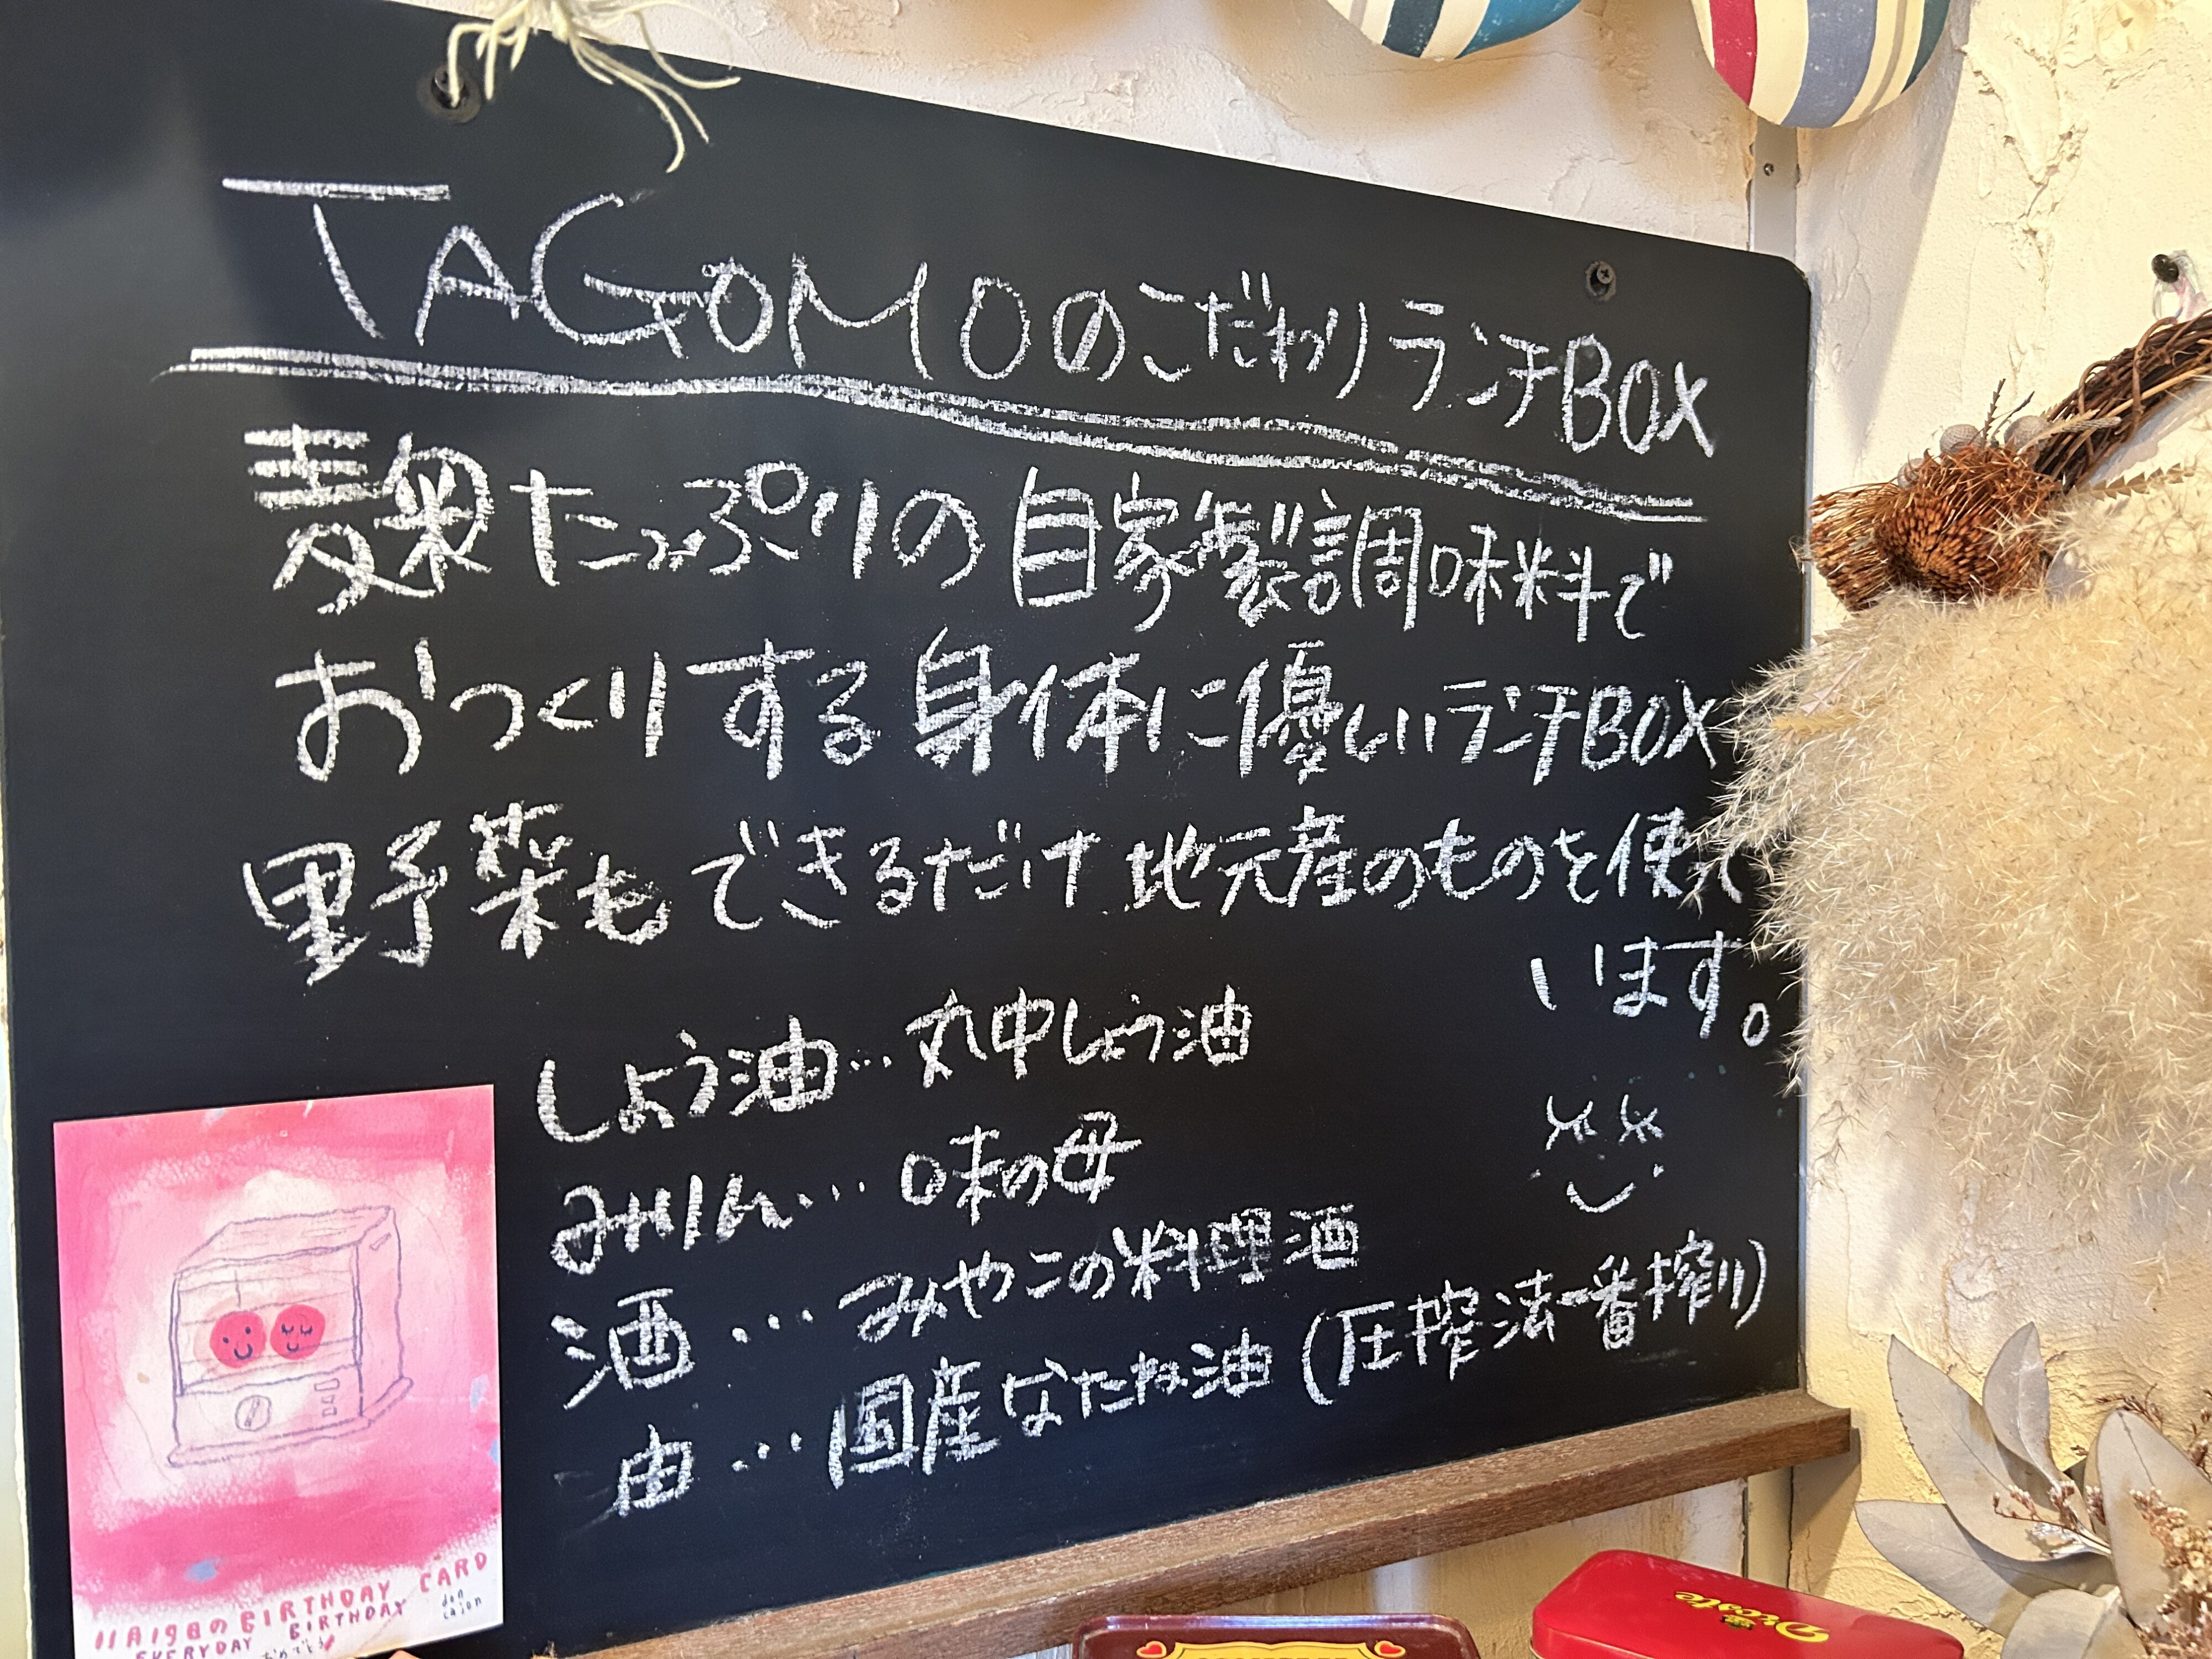 TAGOMOのこだわりランチBOX
麹たっぷりの自家製調味料で
おつくりする身体に優しいランチBOX
野菜もできるだけ地元産のものを使って
います。
しょう油…丸中しょう油
みりん…味の母
酒…みやこの料理酒
油…国産なたね油(圧搾法一番搾り)
11月19日のBIRTHDAY CARD
EVERYDAY BIRTHDAY
おめでとう
don
cajon
Droste